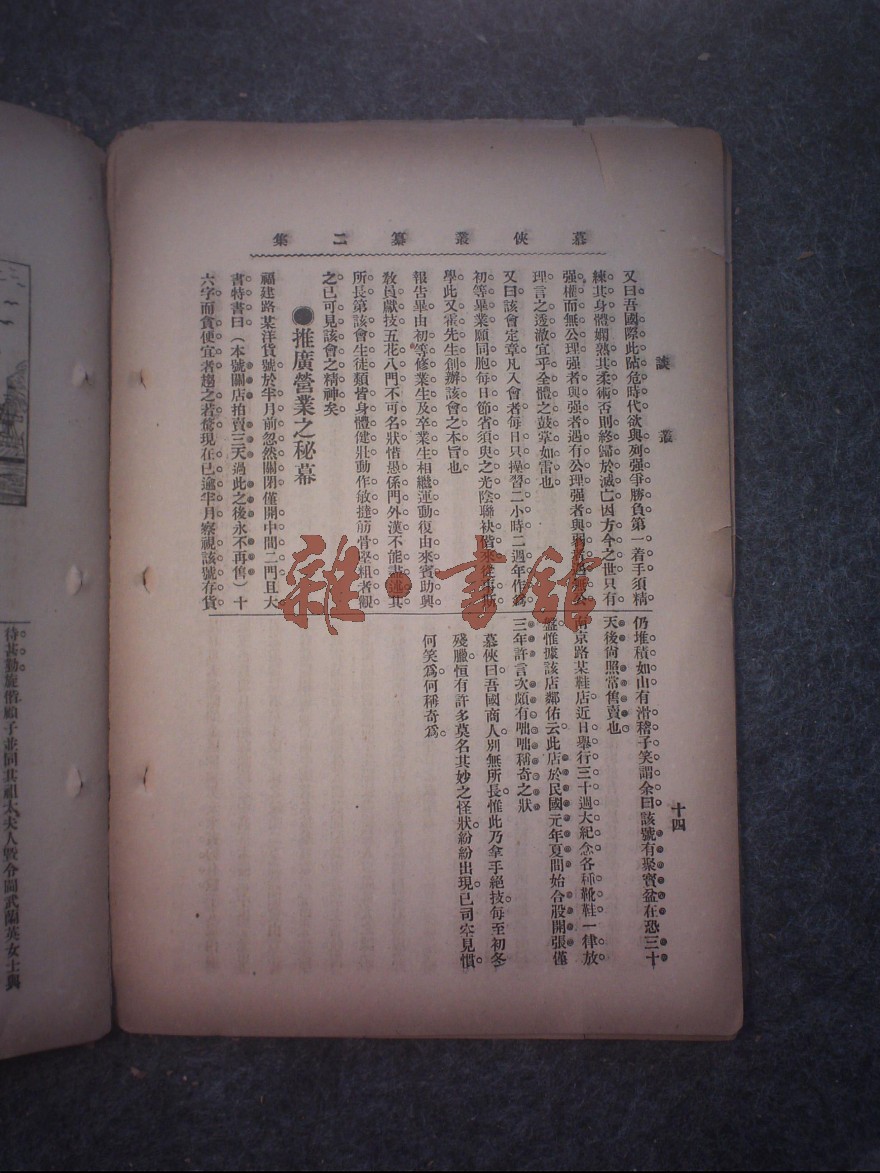 慕俠叢纂二集
談叢
十四
又曰吾國際此阽危時代欲與列强爭勝負第一着手須精
練其身體嫻熟其柔術否則終歸於滅亡因方今之世只有
强權而無公理强者與强者遇有公理强者與弱
理言之透澈宜乎全體之鼓掌如雷也
又曰該會定章凡入會者每日只操習二小時二週年作爲
初等畢業願同胞每日節省須臾之光陰聯袂偕來
學此又霍先生創辦該會之本旨也
報告畢由初等修業生及卒業生相繼運動復由來賓助興
敎員獻技五花八門不可名狀惜愚係門外漢不能盡述其
所長第該會生徒類皆身體健壯動作敏捷筋骨堅粗者觀
之已可見該會之精神矣
●推廣營業之秘幕
福建路某洋貨號於半月前忽然關閉僅開中間二門且大
書特書曰（本號關店拍賣三天過此之後永不再售）十
六字而貪便宜者趨之若鶩現在已逾半月察視該號存貨
仍堆積如山有滑稽子笑謂余曰該號有聚寳盆在恐三十
天後尙照常售賣也
南京路某鞋店近日舉行三十週大紀念各種靴鞋一律放
盤惟據該店鄰佑云此店於民國元年夏間始合股開張僅
三年許言次頗有咄咄稱奇之狀
慕俠曰吾國商人別無所長惟此乃拿手絕技每至初冬
殘臘恒有許多莫名其妙之怪狀紛紛出現已司空見慣
何笑爲何稱奇爲
待甚勤旋偕顧子並同其祖太夫人曁令閫武蘭英女士與
雜·書舘